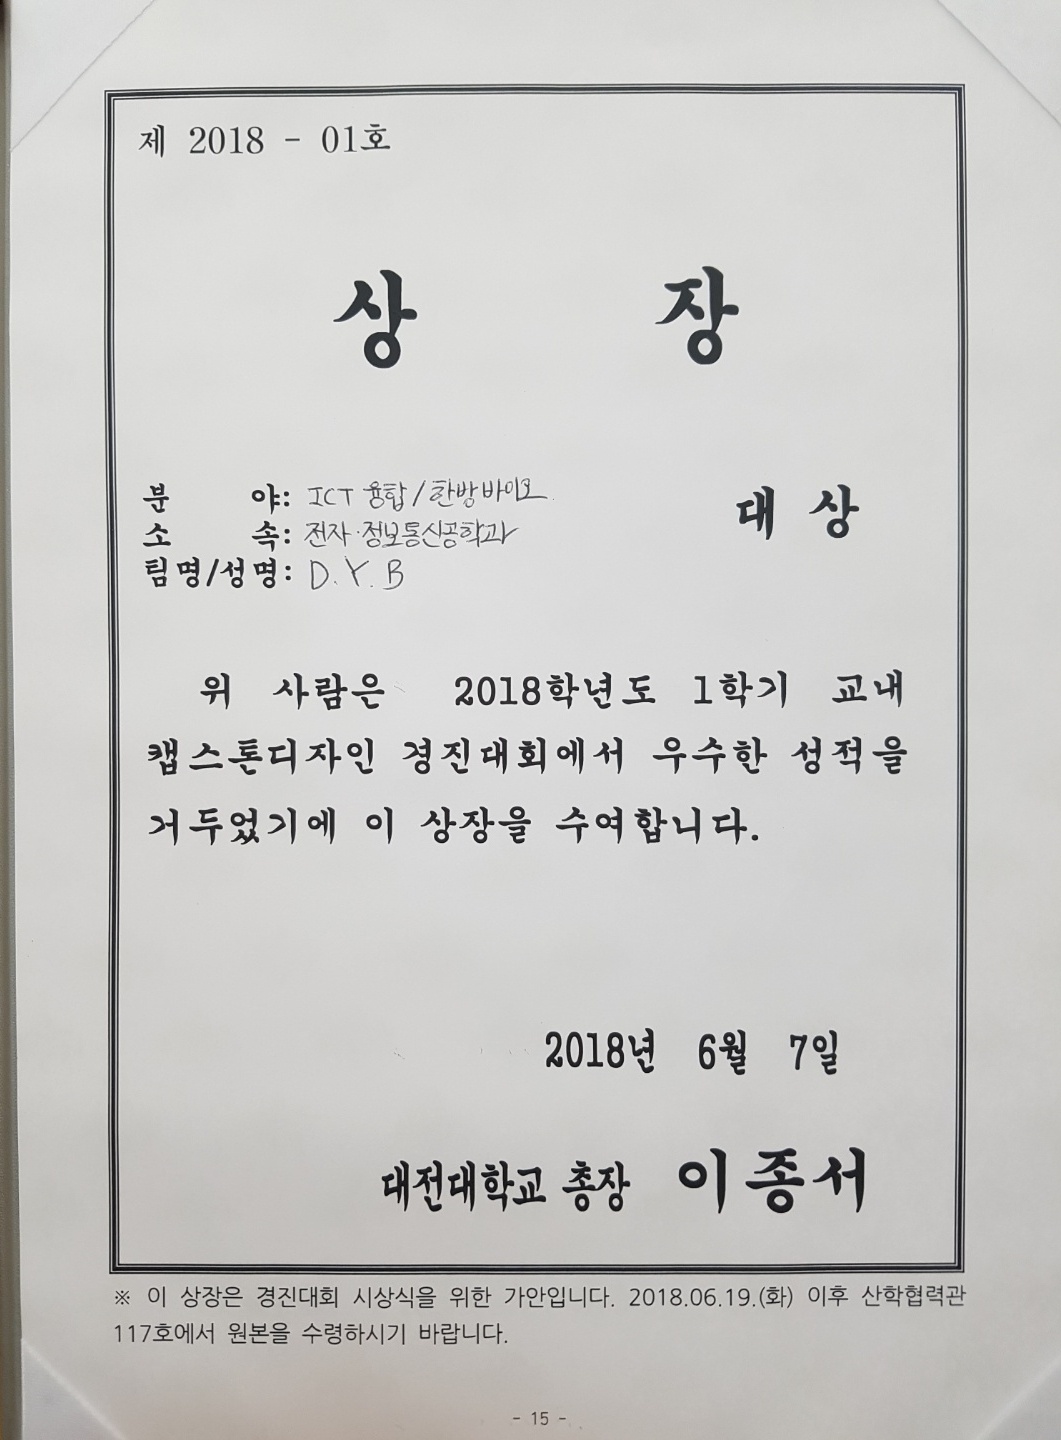 제 2018 - 01호
상 장
분 야: ICT 융합/한방바이오
소 속: 전자·정보통신공학과
팀명/성명: D.Y.B
대 상
위 사람은 2018학년도 1학기 교내
캡스톤디자인 경진대회에서 우수한 성적을
거두었기에 이 상장을 수여합니다.
2018년 6월 7일
대전대학교 총장 이종서
※ 이 상장은 경진대회 시상식을 위한 가안입니다. 2018.06.19.(화) 이후 산학협력관
117호에서 원본을 수령하시기 바랍니다.
- 15 -